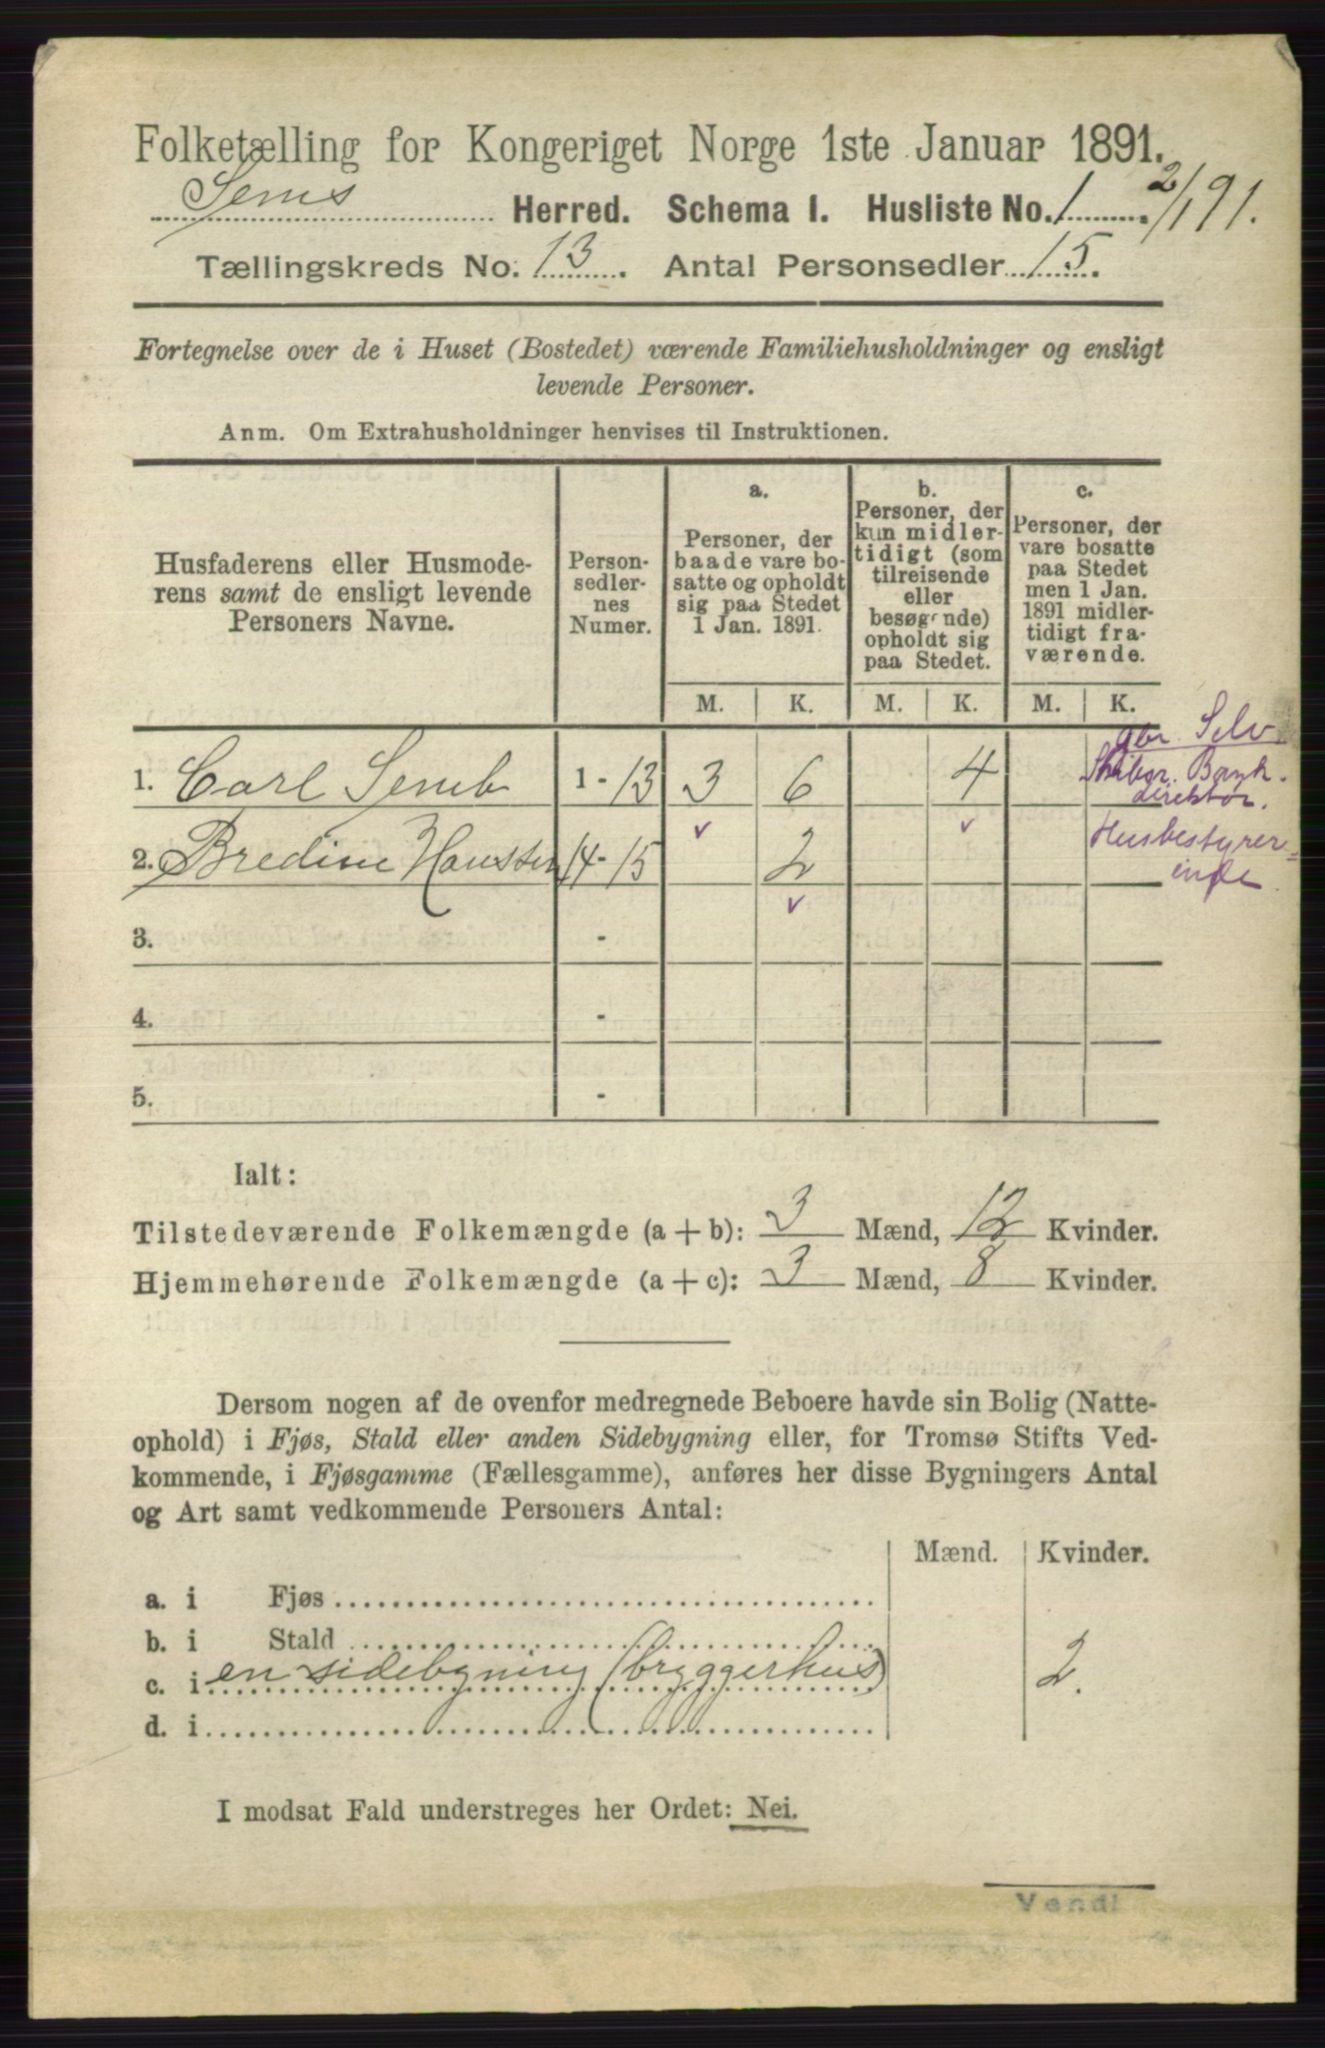 Folketælling for Kongeriget Norge 1ste Januar 1891.
Sems Herred. Schema I. Husliste No. 1 2/1 91.
Tællingskreds No. 13. Antal Personsedler 15.
Fortegnelse over de i Huset (Bostedet) værende Familiehusholdninger og ensligt
levende Personer.
Anm. Om Extrahusholdninger henvises til Instruktionen.
Husfaderens eller Husmode-
rens samt de ensligt levende
Personers Navne.
Person-
sedler-
nes
Numer.
a.
Personer, der
baade vare bo-
satte og opholdt
sig paa Stedet
1 Jan. 1891.
b.
Personer, der
kun midler-
tidigt (som
tilreisende
eller
besøgende)
opholdt sig
paa Stedet.
c.
Personer, der
vare bosatte
paa Stedet
men 1 Jan.
1891 midler-
tidigt fra-
værende.
M. K. M. K. M. K.
1. Carl Semb 1 - 13 3 6 4
Gbr. Selv.
Bank.
direktør.
2. Bredine Hanssen 14 - 15 2
Husbestyrer-
inde
3. -
4. -
5. -
Ialt:
Tilstedeværende Folkemængde (a + b): 3 Mænd, 12 Kvinder.
Hjemmehørende Folkemængde (a + c): 3 Mænd, 8 Kvinder.
Dersom nogen af de ovenfor medregnede Beboere havde sin Bolig (Natte-
ophold) i Fjøs, Stald eller anden Sidebygning eller, for Tromsø Stifts Ved-
kommende, i Fjøsgamme (Fællesgamme), anføres her disse Bygningers Antal
og Art samt vedkommende Personers Antal:
Mænd. Kvinder.
a. i Fjøs
b. i Stald
c. i en sidebygning (bryggerhus) 2.
d. i
I modsat Fald understreges her Ordet: Nei.
Vend!